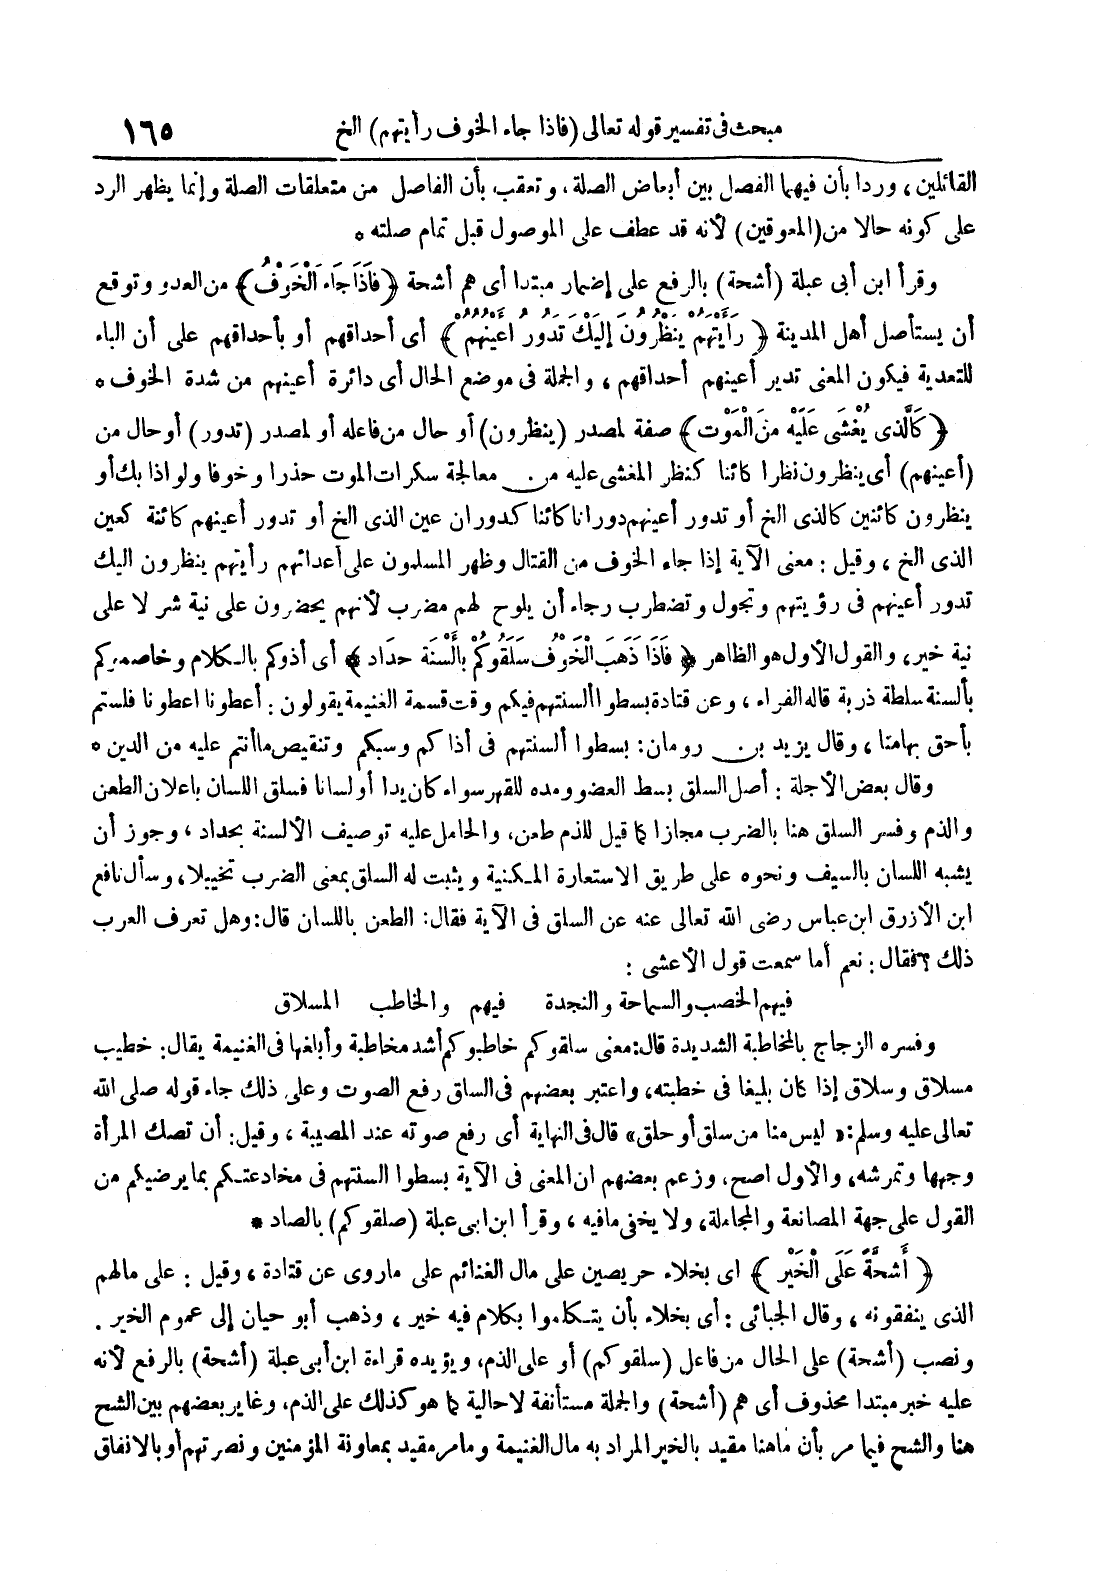 مبحث فى تفسير قوله تعالى (فاذا جاء الخوف رأيتهم) الخ ١٦٥
القائلين ، وردا بأن فيهما الفصل بين أبعاض الصلة ، وتعقب بأن الفاصل من متعلقات الصلة وإنما يظهر الرد
على كونه حالا من (المعوقين) لأنه قد عطف على الموصول قبل تمام صلته *
وقرأ ابن أبى عبلة (أشحة) بالرفع على إضمار مبتدا أى هم أشحة ﴿ فَاذَا جَاءَ الْخَوْفُ﴾ من العدو وتوقع
أن يستأصل أهل المدينة ﴿ رَأَيْتَهُمْ يَنْظُرُونَ إِلَيْكَ تَدُورُ أَعْيُنُهُمْ ﴾ أى أحداقهم أو بأحداقهم على أن الباء
للتعدية فيكون المعنى تدير أعينهم أحداقهم ، والجملة فى موضع الحال أى دائرة أعينهم من شدة الخوف *
﴿ كَالَّذى يُغْشَى عَلَيْه منَ الْمَوْت﴾ صفة لمصدر (ينظرون) أو حال من فاعله أو لمصدر (تدور) أو حال من
(أعينهم) أى ينظرون نظرا كائنا كنظر المغشى عليه من معالجة سكرات الموت حذرا وخوفا ولواذا بك أو
ينظرون كائنين كالذى الخ أو تدور أعينهم دورانا كائنا كدوران عين الذى الخ أو تدور أعينهم كائنة كعين
الذى الخ ، وقيل : معنى الآية إذا جاء الخوف من القتال وظهر المسلمون على أعدائهم رأيتهم ينظرون اليك
تدور أعينهم فى رؤيتهم وتجول وتضطرب رجاء أن يلوح لهم مضرب لأنهم يحضرون على نية شر لا على
نية خير، والقول الأول هو الظاهر ﴿ فَاذَا ذَهَبَ الْخَوْفُ سَلَقُوكُمْ بأَلْسنَة حدَاد ﴾ أى أذوكم بالكلام وخاصموكم
بألسنة سلطة ذربة قاله الفراء ، وعن قتادة بسطوا ألسنتهم فيكم وقت قسمة الغنيمة يقولون : أعطونا اعطونا فلستم
بأحق بهامنا ، وقال يزيد بن رومان: بسطوا ألسنتهم فى أذاكم وسبكم وتنقيص ما أنتم عليه من الدين *
وقال بعض الأجلة : أصل السلق بسط العضو ومده للقهر سواء كان يدا أو لسانا فسلق اللسان باعلان الطعن
والذم وفسر السلق هنا بالضرب مجازا كما قيل للذم طعن، والحامل عليه توصيف الألسنة بحداد ، وجوز أن
يشبه اللسان بالسيف ونحوه على طريق الاستعارة المكنية ويثبت له السلق بمعنى الضرب تخييلا، وسأل نافع
ابن الأزرق ابن عباس رضى الله تعالى عنه عن السلق فى الآية فقال: الطعن باللسان قال: وهل تعرف العرب
ذلك ؟ فقال : نعم أما سمعت قول الأعشى :
فيهم الخصب والسماحة والنجدة فيهم والخاطب المسلاق
وفسره الزجاج بالمخاطبة الشديدة قال: معنى سلقوكم خاطبوكم أشد مخاطبة وأبلغها فى الغنيمة يقال: خطيب
مسلاق وسلاق إذا كان بليغا فى خطبته، واعتبر بعضهم فى السلق رفع الصوت وعلى ذلك جاء قوله صلى الله
تعالى عليه وسلم: « ليس منا من سلق أو حلق» قال فى النهاية أى رفع صوته عند المصيبة ، وقيل: أن تصك المرأة
وجهها وتمرشه، والأول اصح، وزعم بعضهم ان المعنى فى الآية بسطوا السنتهم فى مخادعتكم بما يرضيكم من
القول على جهة المصانعة والمجاملة، ولا يخفى مافيه ، وقرأ ابن ابى عبلة (صلقوكم) بالصاد *
﴿ أَشحَّةً عَلَى الْخَيْر ﴾ اى بخلاء حريصين على مال الغنائم على ماروى عن قتادة ، وقيل : على مالهم
الذى ينفقونه ، وقال الجبائى : أى بخلاء بأن يتكلموا بكلام فيه خير ، وذهب أبو حيان إلى عموم الخير .
ونصب (أشحة) على الحال من فاعل (سلقوكم) أو على الذم، ويؤيده قراءة ابن أبى عبلة (أشحة) بالرفع لأنه
عليه خبر مبتدا محذوف أى هم (أشحة) والجملة مستأنفة لا حالية كما هو كذلك على الذم، وغاير بعضهم بين الشح
هنا والشح فيما مر بأن ماهنا مقيد بالخير المراد به مال الغنيمة ومامر مقيد بمعاونة المؤمنين ونصرتهم أو بالانفاق